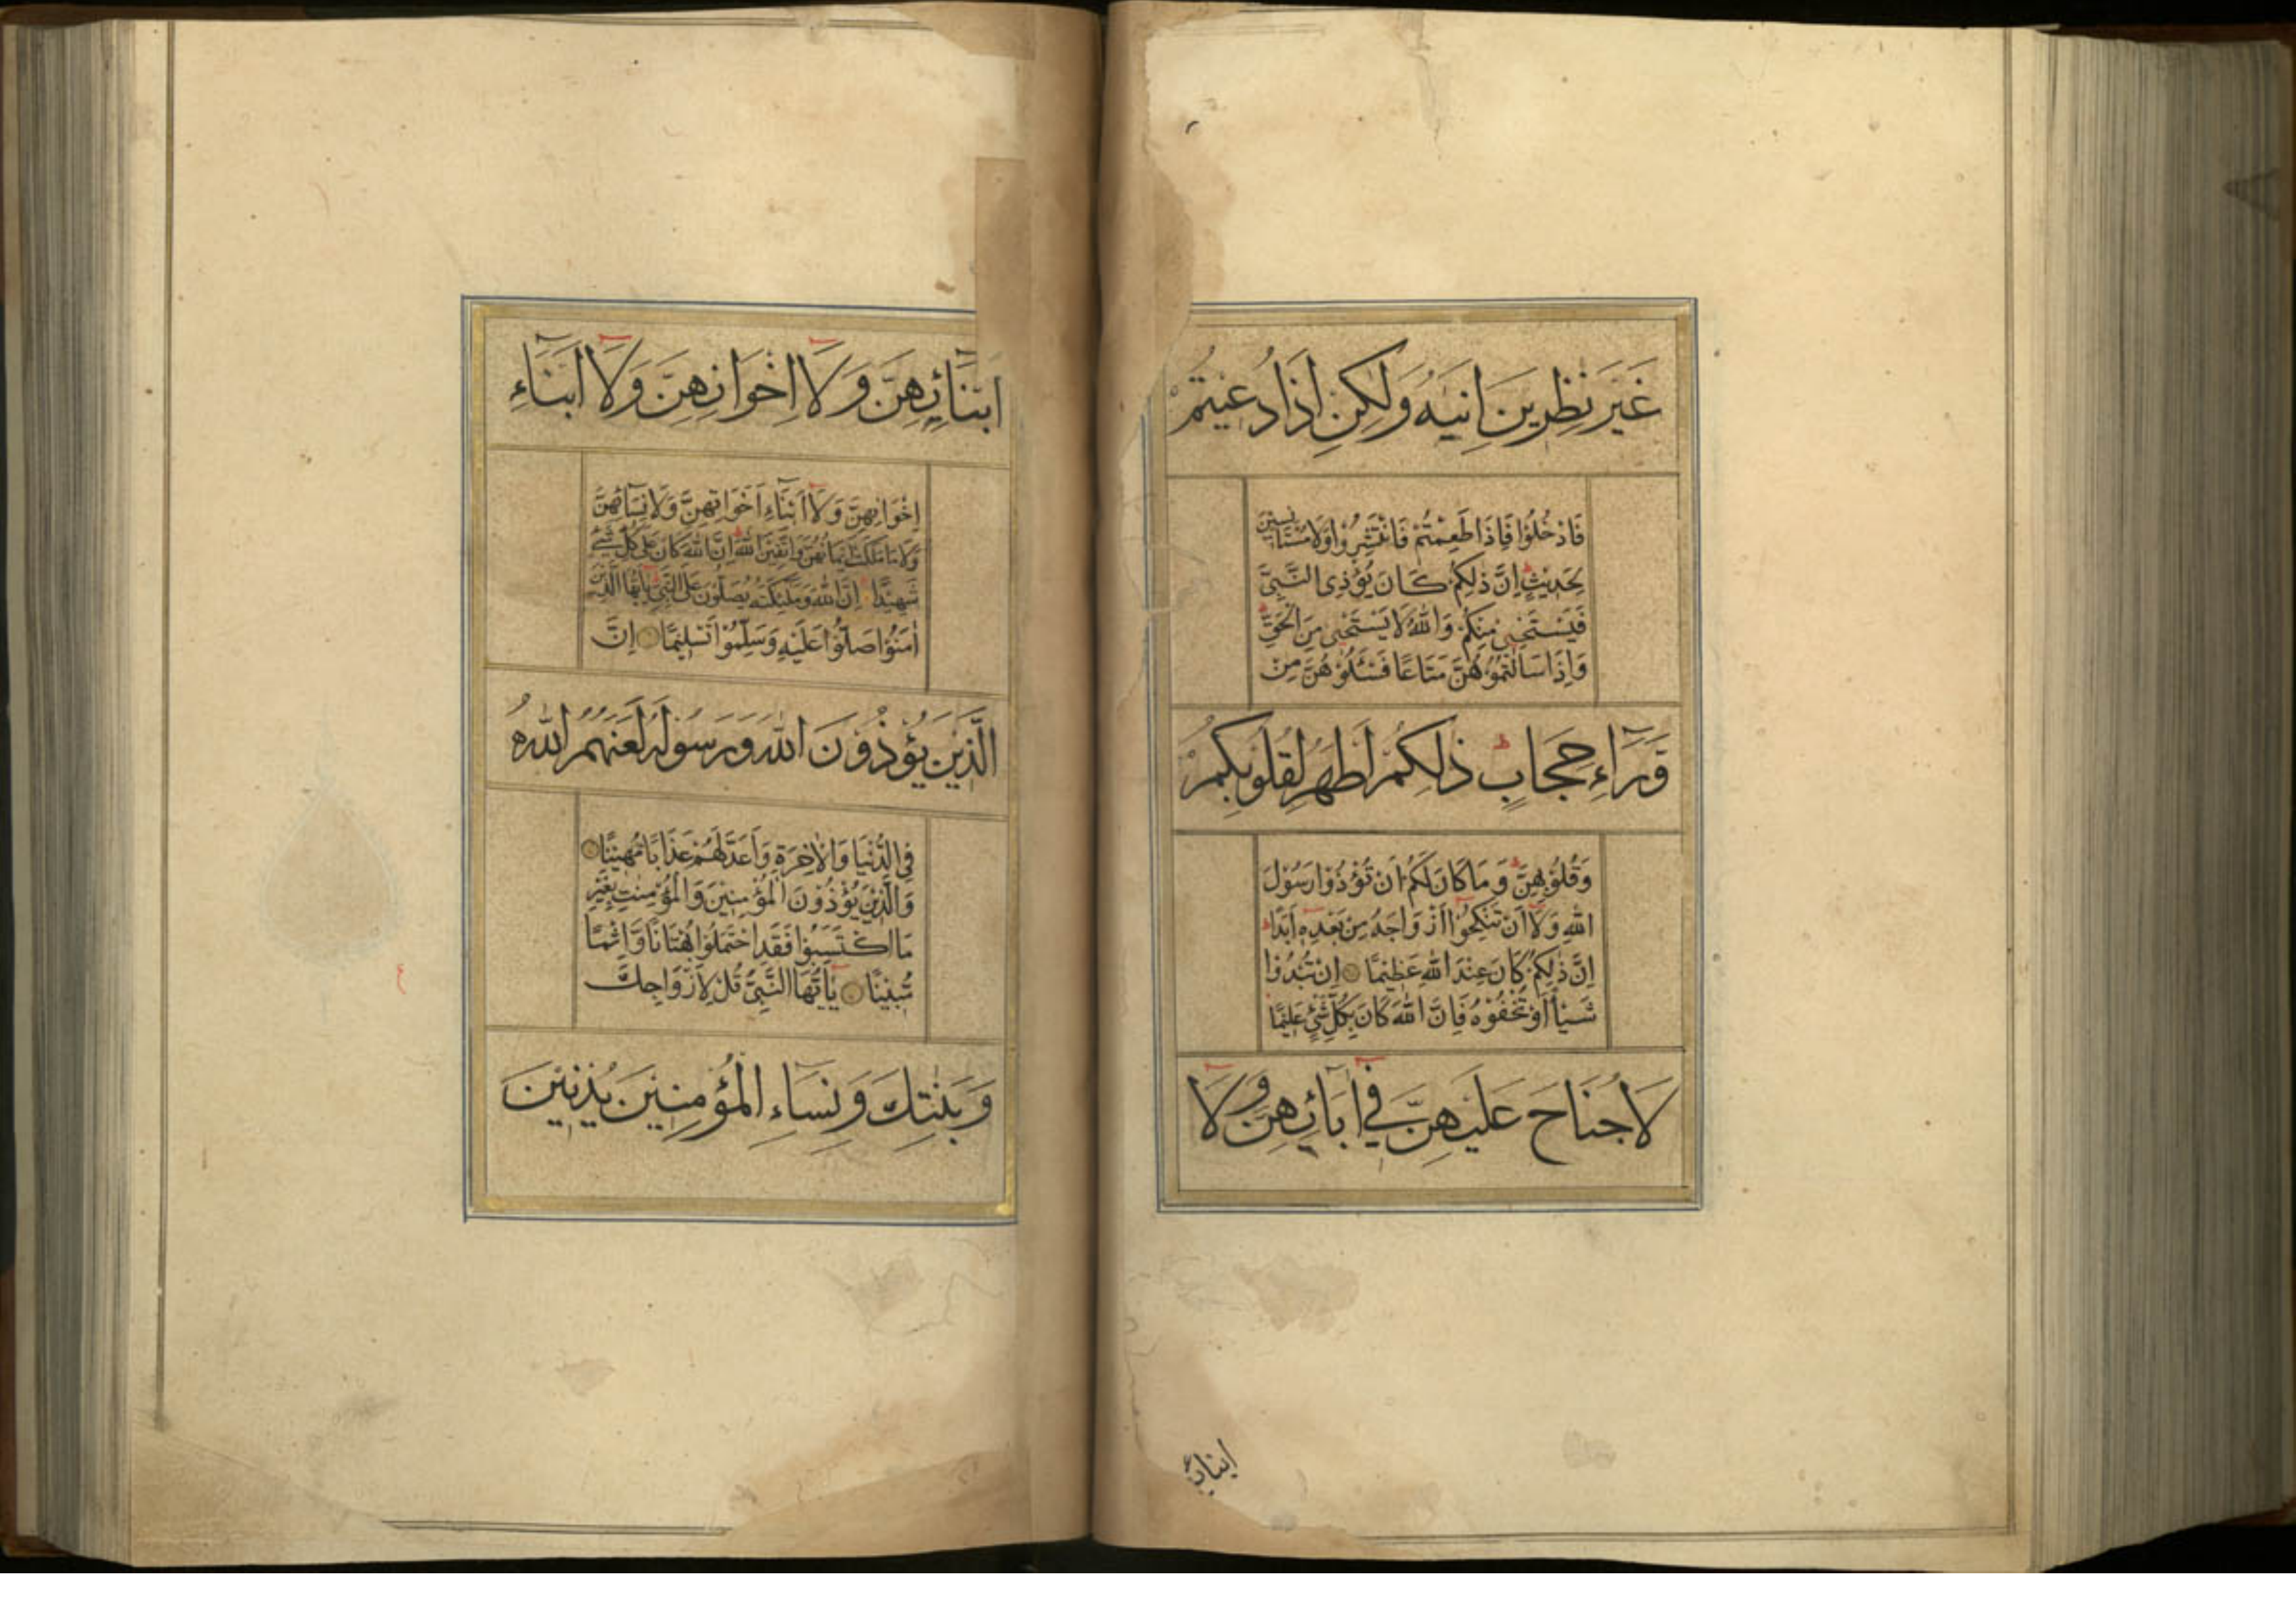 غَيْرَ نٰظِرِينَ اِنٰيهُ وَلٰكِنْ اِذَا دُعِيتُمْ
فَادْخُلُوْا فَاِذَا طَعِمْتُمْ فَانْتَشِرُوْا وَلَا مُسْتَاْنِسِيْنَ
لِحَدِيْثٍ اِنَّ ذٰلِكُمْ كَانَ يُؤْذِى النَّبِىَّ
فَيَسْتَحْيٖ مِنْكُمْ وَاللّٰهُ لَا يَسْتَحْيٖ مِنَ الْحَقِّ
وَاِذَا سَاَلْتُمُوْهُنَّ مَتَاعًا فَسْـَٔلُوْهُنَّ مِنْ
وَّرَآءِ حِجَابٍ ط ذٰلِكُمْ اَطْهَرُ لِقُلُوْبِكُمْ
وَقُلُوْبِهِنَّ ط وَمَا كَانَ لَكُمْ اَنْ تُؤْذُوْا رَسُوْلَ
اللّٰهِ وَلَآ اَنْ تَنْكِحُوْٓا اَزْوَاجَهُ مِنْ بَعْدِهٖٓ اَبَدًا ط
اِنَّ ذٰلِكُمْ كَانَ عِنْدَ اللّٰهِ عَظِيْمًا اِنْ تُبْدُوْا
شَيْـًٔا اَوْ تُخْفُوْهُ فَاِنَّ اللّٰهَ كَانَ بِكُلِّ شَىْءٍ عَلِيْمًا
لَا جُنَاحَ عَلَيْهِنَّ فِيْٓ اٰبَآئِهِنَّ وَلَآ
ابنائ
اَبْنَآئِهِنَّ وَلَآ اِخْوَانِهِنَّ وَلَآ اَبْنَآءِ
اِخْوَانِهِنَّ وَلَآ اَبْنَآءِ اَخَوَاتِهِنَّ وَلَا نِسَآئِهِنَّ
وَلَا مَا مَلَكَتْ اَيْمَانُهُنَّ وَاتَّقِيْنَ اللّٰهَ ط اِنَّ اللّٰهَ كَانَ عَلٰى كُلِّ شَىْءٍ
شَهِيْدًا اِنَّ اللّٰهَ وَمَلٰٓئِكَتَهُ يُصَلُّوْنَ عَلَى النَّبِىِّ يٰٓاَيُّهَا الَّذِيْنَ
اٰمَنُوْا صَلُّوْا عَلَيْهِ وَسَلِّمُوْا تَسْلِيْمًا اِنَّ
الَّذِيْنَ يُؤْذُوْنَ اللّٰهَ وَرَسُوْلَهُ لَعَنَهُمُ اللّٰهُ
فِى الدُّنْيَا وَالْاٰخِرَةِ وَاَعَدَّ لَهُمْ عَذَابًا مُّهِيْنًا
وَالَّذِيْنَ يُؤْذُوْنَ الْمُؤْمِنِيْنَ وَالْمُؤْمِنٰتِ بِغَيْرِ
مَا اكْتَسَبُوْا فَقَدِ احْتَمَلُوْا بُهْتَانًا وَّاِثْمًا
مُّبِيْنًا يٰٓاَيُّهَا النَّبِىُّ قُلْ لِاَزْوَاجِكَ
وَبَنٰتِكَ وَنِسَآءِ الْمُؤْمِنِيْنَ يُدْنِيْنَ
ع